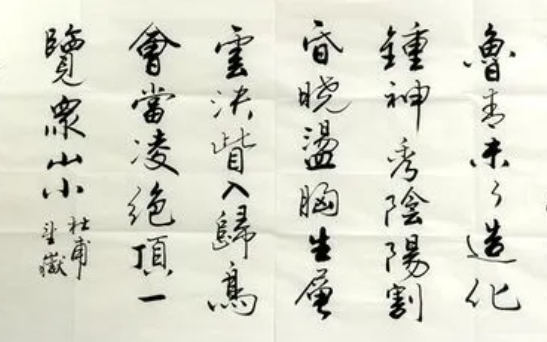 魯青未了造化
鍾神秀陰陽割
昏曉盪胸生層
雲決眥入歸鳥
會當凌絕頂一
覽眾山小
杜甫
望嶽